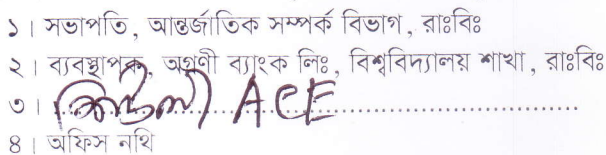 ১। সভাপতি, আন্তর্জাতিক সম্পর্ক বিভাগ, রাঃবিঃ
২। ব্যবস্থাপক, অগ্রণী ব্যাংক লিঃ, বিশ্ববিদ্যালয় শাখা, রাঃবিঃ
৩। ACE
৪। অফিস নথি